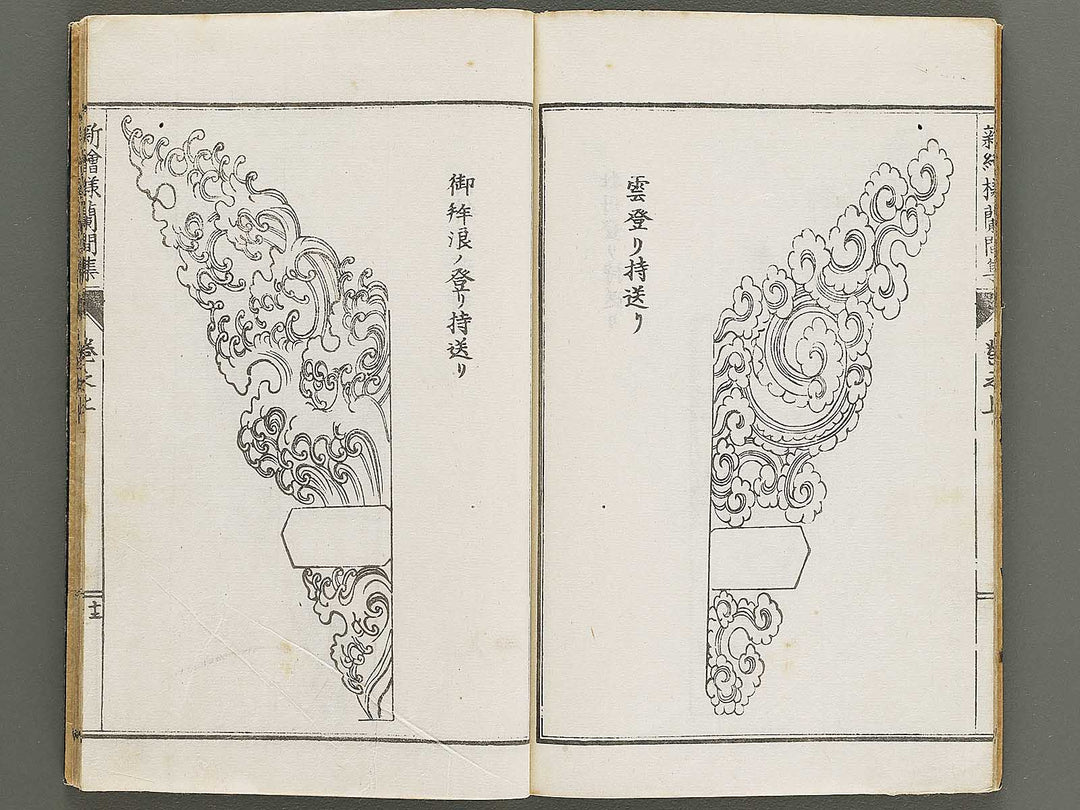 新繪様蘭間集
巻之上
雲登り持送り
御拝浪ノ登り持送り
新繪様蘭間集
巻之上
十三